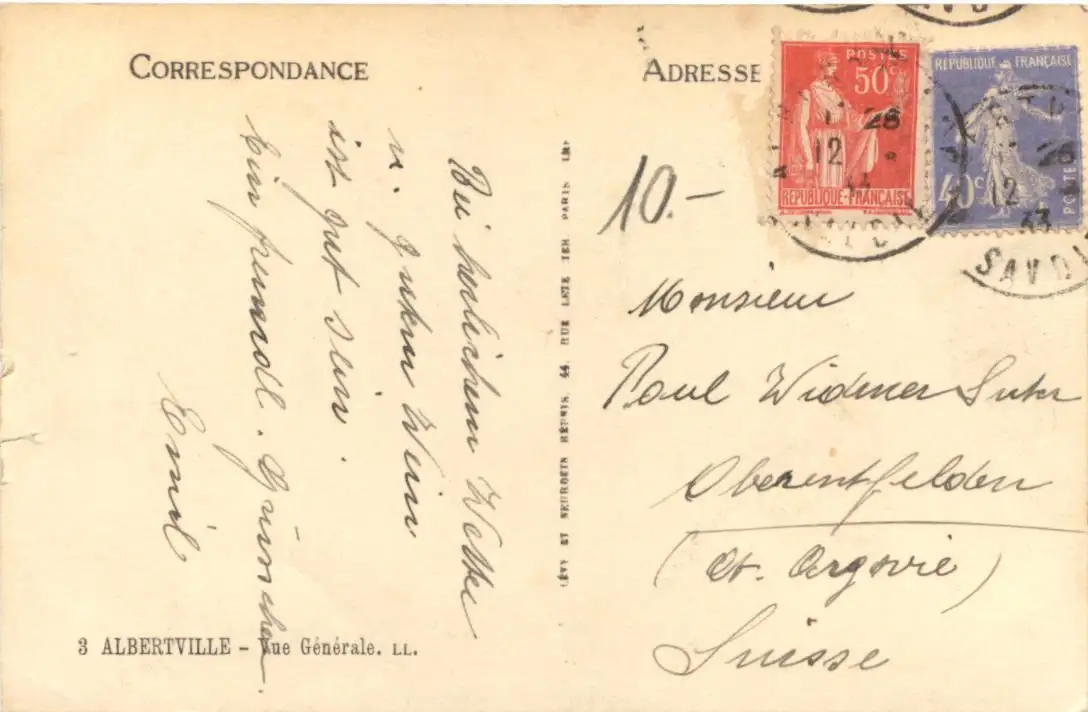 CORRESPONDANCE
ADRESSE
POSTES
50c
REPUBLIQUE-FRANÇAISE
RÉPUBLIQUE FRANÇAISE
40c
POSTES
28
12
28
12
33
SAVOIE
10.-
Bei herlichem Wetter
u. gutem Wein
ist gut sein.
Ein freundl. Grüsschen
Emil
LÉVY ET NEURDEIN RÉUNIS, 44, RUE LETELLIER, PARIS IMP
Monsieur
Paul Widmer Suter
Oberentfelden
(Ct. Argovie)
Suisse
3 ALBERTVILLE – Vue Générale. LL.